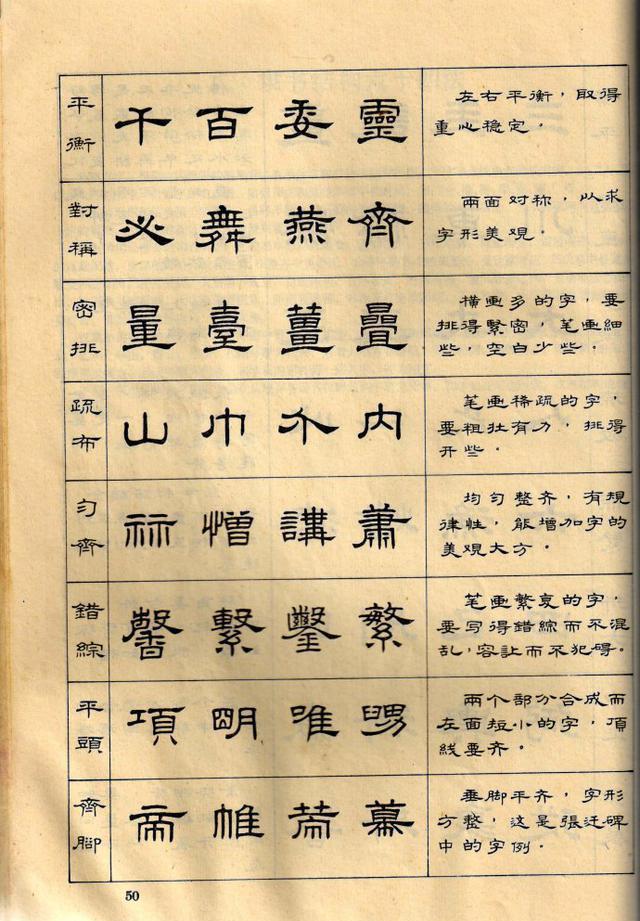 平衡
千 百 委 靈
左右平衡，取得
重心稳定。
對稱
必 舞 燕 齊
兩面对称，以求
字形美观。
密排
量 臺 薑 疊
横画多的字，要
排得緊密，笔画細
些，空白少些。
疏布
山 巾 介 内
笔画稀疏的字，
要粗壮有力，排得
开些。
匀齊
憎 講 蕭
均匀整齐，有規
律性，能增加字的
美观大方。
錯綜
馨 繫 鑿 繁
笔画繁复的字，
要写得錯綜而不混
乱，容让而不犯碍。
平頭
項 朙 唯
兩个部分合成而
左面短小的字，頂
线要齐。
齊腳
帝 帷 幕
垂脚平齐，字形
方整，这是張迁碑
中的字例。
50